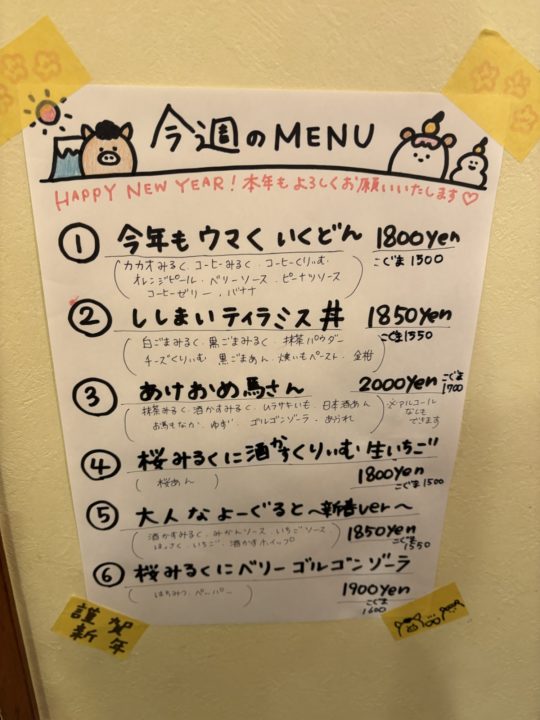 今週のMENU
HAPPY NEW YEAR! 本年もよろしくお願いいたします♡
① 今年もウマくいくどん 1800yen
こぐま1500
(カカオみるく、コーヒーみるく、コーヒーくりぃむ、
オレンジピール、ベリーソース、ピーナツソース
コーヒーゼリー、バナナ)
② ししまいティラミス丼 1850yen
こぐま1550
(白ごまみるく、黒ごまみるく、抹茶パウダー
チーズくりぃむ 黒ごまあん、焼いもペースト、金柑)
③ あけおめ馬さん 2000yen こぐま1700
(抹茶みるく、酒かすみるく、ムラサキいも、日本酒あん
お馬もなか、ゆず、ゴルゴンゾーラ、あられ)
※アルコール
なしも
できます
④ 桜みるくに酒かすくりぃむ 生いちご
(桜あん)
1800yen
こぐま1500
⑤ 大人なよーぐると〜新春ver〜
(酒かすみるく、みかんソース、いちごソース、
はっさく、いちご、酒かすホイップ)
1850yen
こぐま1550
⑥ 桜みるくにベリーゴルゴンゾーラ
(はちみつ、ペーパー)
1900yen
こぐま
1600
謹賀
新年